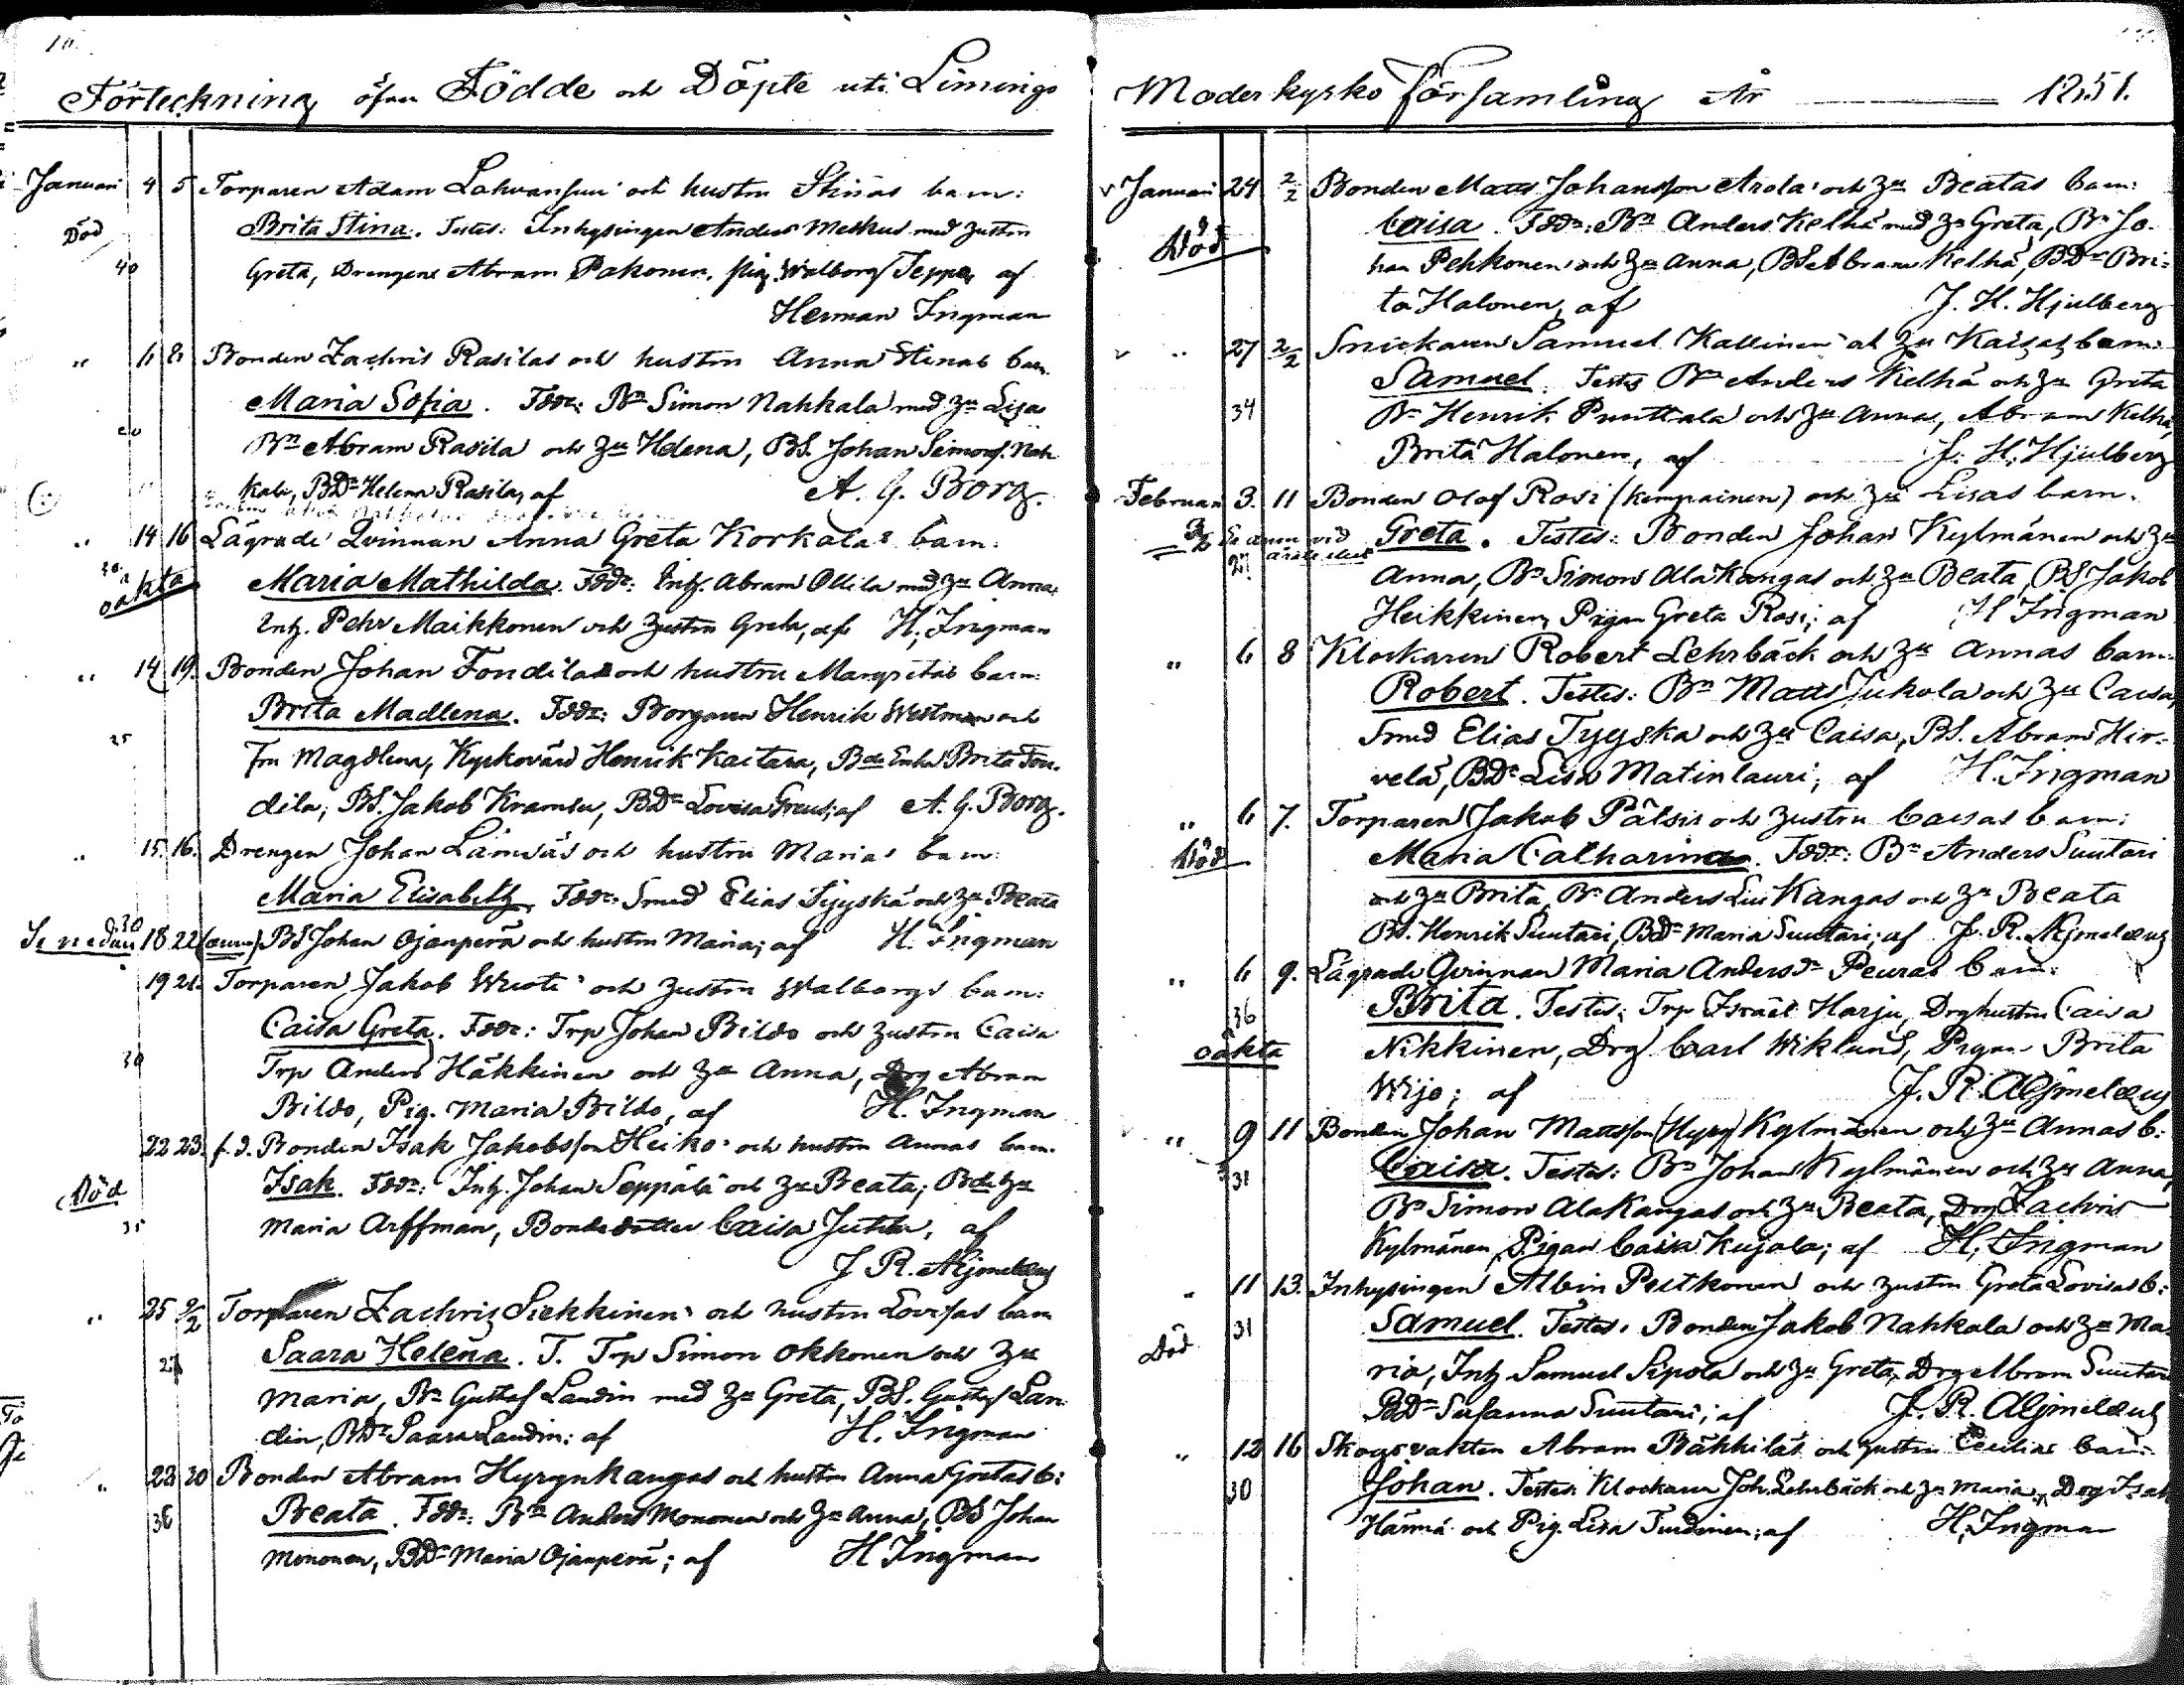 Förteckning öfver Födde och Döpte uti Limingo
Januari 4 5 Torparen Adam och hustru Stinas barn:
Död Brita Stina. Testes: Inhysingen Anders Meskus med hustru
40 Greta, Drengen Abram Pakonen, Pig. Walborg Seppä, af
Herman Ingman
" 6 8 Bonden Zachris Rasilas och hustru Anna Stinas barn
Maria Sofia. Fddr: Bn Simon Nahkala med Hu Lisa
Bn Abram Rasila och Hu Helena, BS. Johan Simonss. Nah
kala, BDr Helena Rasila, af A. G. Borg.
" 14 16 Lägrade Qvinnan Anna Greta Korkalas barn:
oäkta Maria Mathilda. Fddr: Inh. Abram Ollila med Hu Anna,
Inh. Pehr Maikkonen och hustru Greta, af H. Ingman
" 14 19. Bonden Johan Fondilas och hustru Margretas barn:
Brita Madlena. Fddr: Borgaren Henrik Westman och
25 Fru Magdlena, Kyrkovärd Henrik Kaitera, Bde Enka Brita Fon-
dila, BS. Jakob Kramsu, BDr Lovisa af A. G. Borg.
" 15. 16. Drengen Johan Lämsäs och hustru Marias barn:
Maria Elisabeth. Fddr: Smed Elias Tyyskä och Hu Beata
30
Se nedan 18 22 BS Johan Ojanperä och hustru Maria; af H. Ingman
19 21. Torparen Jakob och hustru Walborgs barn:
Caisa Greta. Fddr: Trp Johan Bildo och hustru Caisa
30 Trp Anders Häkkinen och Hu Anna, Drg Abram
Bildo, Pig. Maria Bildo, af H. Ingman
22 23. f.d. Bonden Isak Jakobsson Heikos och hustru Annas barn.
Död Isak. Fddr: Inh. Johan Seppälä och Hu Beata; Bde Hu
35 Maria Arffman, Bondedotter Caisa af
J. R. Aejmelæus
" 25 2/2 Torparen Zachris Siekkinens och hustru Lovisas barn
Saara Helena. T. Trp Simon Okkonen och Hu
Maria, Bn Gustaf Landin med Hu Greta, BS. Gustaf Lan-
din, BDr Saara Landin; af H. Ingman
" 28 30 Bonden Abram Hyrynkangas och hustru Anna Gretas b:
36 Beata. Fddr: Bn Anders Mononen och Hu Anna, BS Johan
Mononen, BDr Maria Ojanperä; af H Ingman
Moderkyrko Församling År 1851.
Januari 24 2/2 Bonden Matts Johansson Arola och Hu Beatas barn:
Död Caisa. Fddr: Bn Anders Kelhä med Hu Greta, Bn Jo-
han Pehkonen och Hu Anna, BS Abram Kelhä, BDr Bri-
ta Halonen, af J. H. Hjulberg
" 27 2/2 Snickaren Samuel Kallinen och Hu Kaisas barn:
Samuel. Testes Bn Anders Kelhä och Hu Greta
34 Bn Henrik Punttala och Hu Anna, Abram Kelhä,
Brita Halonen, af J. H. Hjulberg
Februari 3. 11 Bonden Olof Rosi (Kempainen) och Hu Lisas barn.
Greta. Testes: Bonden Johan Kylmänen och Hu
Anna, Bn Simon Alakangas och Hu Beata, BS Jakob
Heikkinen, Pigan Greta Rosi; af H Ingman
" 6 8 Klockaren Robert Lehrbäck och Hu Annas barn:
Robert. Testes: Bn Matts Jukola och Hu Caisa,
Smed Elias Tyyska och Hu Caisa, BS. Abram Hir-
velä, BDr Lisa Matinlauri; af H. Ingman
" 6 7. Torparen Jakob Pätsis och hustru Caisas barn:
Död Maria Catharina. Fddr: Bn Anders Suutari
och Hu Brita, Bn Anders Liukangas och Hu Beata
BS. Henrik Suutari, BDr Maria Suutari; af J. R. Aejmelæus
" 6 9. Lägrade Qvinnan Maria Andersdr Peuras barn:
36 Brita. Testes: Trp Israel Harju, Drg hustru Caisa
oäkta Nikkinen, Drg Carl Wiklund, Pigan Brita
Wijo; af J. R. Aejmelæus
" 9 11 Bonden Johan Mattsson (Hyry) Kylmänen och Hu Annas b:
31 Caisa. Testes: Bn Johan Kylmänen och Hu Anna,
Bn Simon Alakangas och Hu Beata, Drg Zachris
Kylmänen, Pigan Caisa Kujala; af H. Ingman
" 11 13. Inhysingen Albin Peltkonen och hustru Greta Lovisas b:
Död 31 Samuel. Testes: Bonden Jakob Nahkala och Hu Ma-
ria, Inh Samuel Sipola och Hu Greta, Drg Abram Suutari
BDr Susanna Suutari; af J. R. Aejmelæus
" 12 16 Skogsvakten Abram Räkkiläs och hustru Cecilias barn:
30 Johan. Testes: Klockaren Joh. Lehrbäck och Hu Maria, Drg Isak
Härmä och Pig. Lisa af H. Ingman